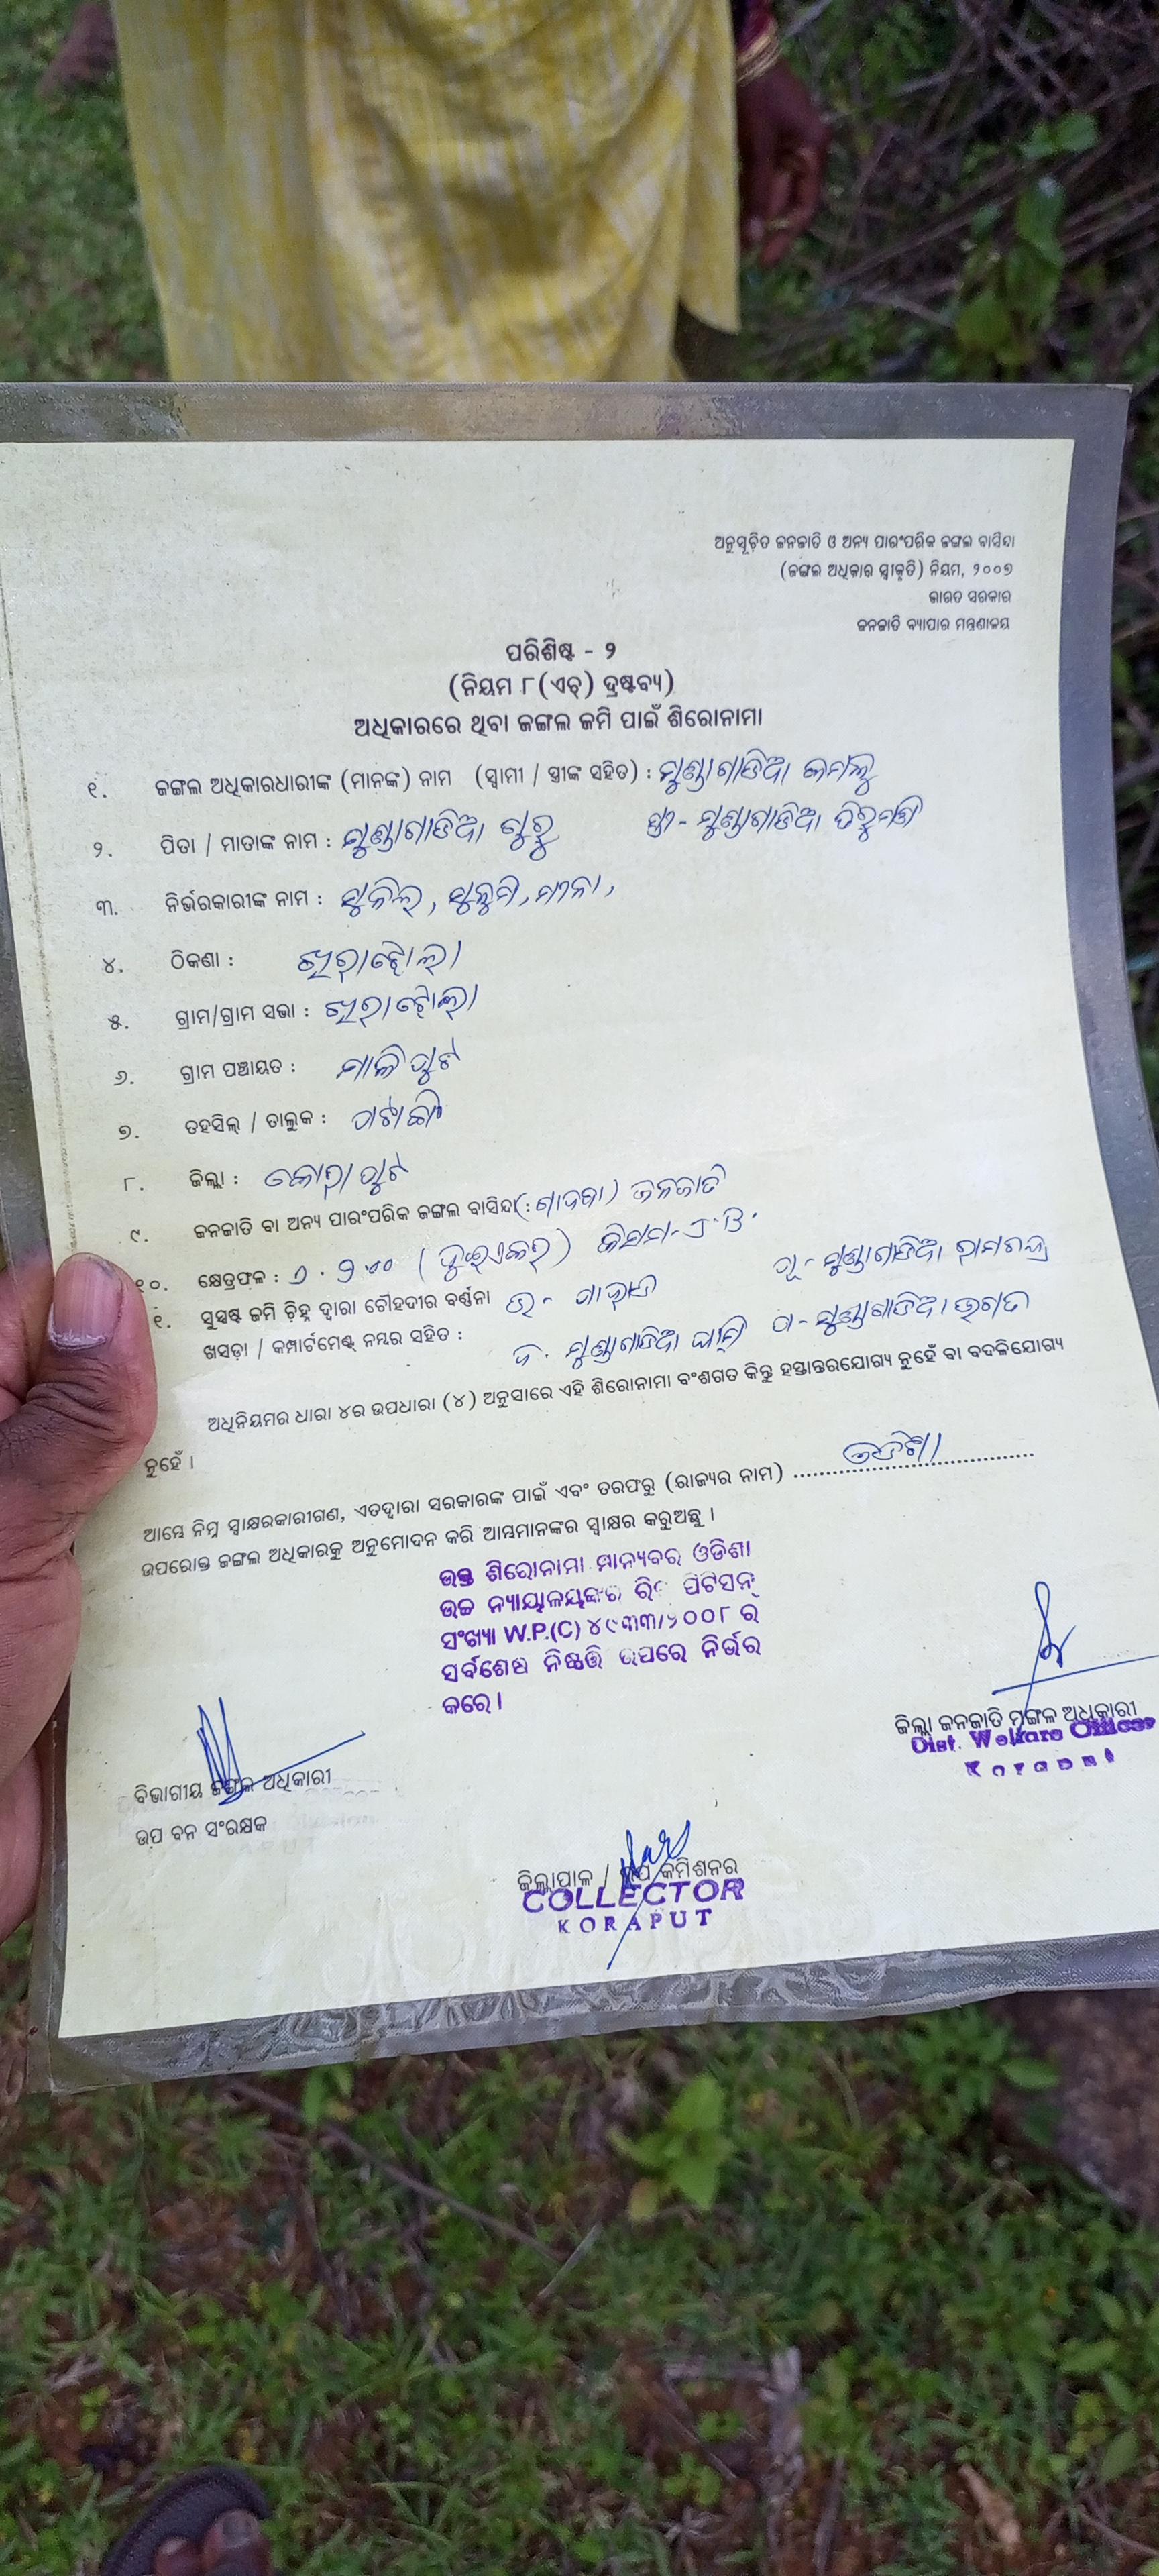 ଅନୁସୂଚିତ ଜନଜାତି ଓ ଅନ୍ୟ ପାରଂପରିକ ଜଙ୍ଗଲ ବାସିନ୍ଦା
(ଜଙ୍ଗଲ ଅଧିକାର ସ୍ୱୀକୃତି) ନିୟମ, ୨୦୦୭
ଭାରତ ସରକାର
ଜନଜାତି ବ୍ୟାପାର ମନ୍ତ୍ରଣାଳୟ
ପରିଶିଷ୍ଟ - ୨
(ନିୟମ ୮(ଏଚ୍) ଦ୍ରଷ୍ଟବ୍ୟ)
ଅଧିକାରରେ ଥିବା ଜଙ୍ଗଲ ଜମି ପାଇଁ ଶିରୋନାମା
୧. ଜଙ୍ଗଲ ଅଧିକାରଧାରୀଙ୍କ (ମାନଙ୍କ) ନାମ (ସ୍ୱାମୀ / ସ୍ତ୍ରୀଙ୍କ ସହିତ) : ମୁଣ୍ଡାଗାଡିଆ କମଳୁ
୨. ପିତା / ମାତାଙ୍କ ନାମ : ମୁଣ୍ଡାଗାଡିଆ ଗୁରୁ ସ୍ତ୍ରୀ - ମୁଣ୍ଡାଗାଡିଆ
୩. ନିର୍ଭରକାରୀଙ୍କ ନାମ :
୪. ଠିକଣା :
୫. ଗ୍ରାମ/ଗ୍ରାମ ସଭା :
୬. ଗ୍ରାମ ପଞ୍ଚାୟତ : ମାଳିପୁଟ
୭. ତହସିଲ୍ / ତାଲୁକ : ପଟାଙ୍ଗୀ
୮. ଜିଲ୍ଲା : କୋରାପୁଟ
୯. ଜନଜାତି ବା ଅନ୍ୟ ପାରଂପରିକ ଜଙ୍ଗଲ ବାସିନ୍ଦା : (ଗାଦବା) ଜନଜାତି
୧୦. କ୍ଷେତ୍ରଫଳ : (ଦୁଇଏକର) କିସମ-
୧. ସୁସ୍ପଷ୍ଟ ଜମି ଚିହ୍ନ ଦ୍ୱାରା ଚୌହଦୀର ବର୍ଣ୍ଣନା ଉ - ପାହାଡ ପୂ - ମୁଣ୍ଡାଗାଡିଆ ରାମଚନ୍ଦ୍ର
ଖସଡ଼ା / କମ୍ପାର୍ଟମେଣ୍ଟ୍ ନମ୍ବର ସହିତ : ଦ - ମୁଣ୍ଡାଗାଡିଆ ପ - ମୁଣ୍ଡାଗାଡିଆ ଭଗତ
ଅଧିନିୟମର ଧାରା ୪ର ଉପଧାରା (୪) ଅନୁସାରେ ଏହି ଶିରୋନାମା ବଂଶଗତ କିନ୍ତୁ ହସ୍ତାନ୍ତରଯୋଗ୍ୟ ନୁହେଁ ବା ବଦଳିଯୋଗ୍ୟ
ନୁହେଁ ।
ଆମ୍ଭେ ନିମ୍ନ ସ୍ୱାକ୍ଷରକାରୀଗଣ, ଏତଦ୍ଦ୍ୱାରା ସରକାରଙ୍କ ପାଇଁ ଏବଂ ତରଫରୁ (ରାଜ୍ୟର ନାମ) ଓଡିଶା
ଉପରୋକ୍ତ ଜଙ୍ଗଲ ଅଧିକାରକୁ ଅନୁମୋଦନ କରି ଆମ୍ଭମାନଙ୍କର ସ୍ୱାକ୍ଷର କରୁଅଛୁ ।
ଉକ୍ତ ଶିରୋନାମା ମାନ୍ୟବର ଓଡିଶା
ଉଚ୍ଚ ନ୍ୟାୟାଳୟଙ୍କର ରିଟ ପିଟିସନ୍
ସଂଖ୍ୟା W.P.(C) ୪୯୩୩/୨୦୦୮ ର
ସର୍ବଶେଷ ନିଷ୍ପତ୍ତି ଉପରେ ନିର୍ଭର
କରେ ।
ଜିଲ୍ଲା ଜନଜାତି ମଙ୍ଗଳ ଅଧିକାରୀ
Dist. Welfare Officer
Koraput
ବିଭାଗୀୟ ଜଙ୍ଗଲ ଅଧିକାରୀ
ଉପ ବନ ସଂରକ୍ଷକ
ଜିଲ୍ଲାପାଳ / ଉପ କମିଶନର
COLLECTOR
KORAPUT